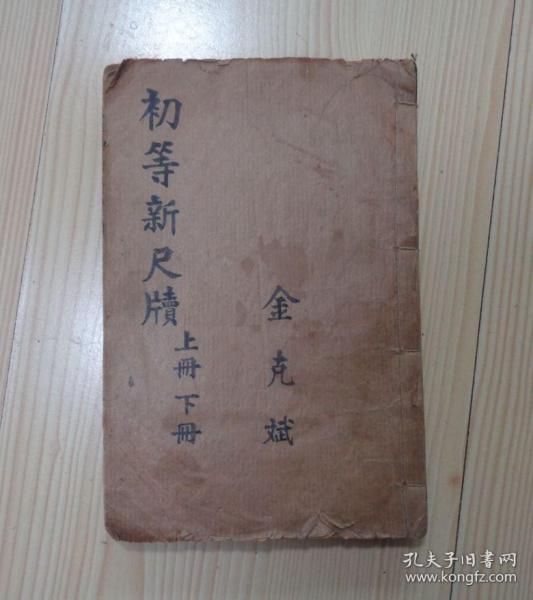 初等新尺牘
上冊下冊
金克斌
孔夫子旧书网
www.kongfz.com